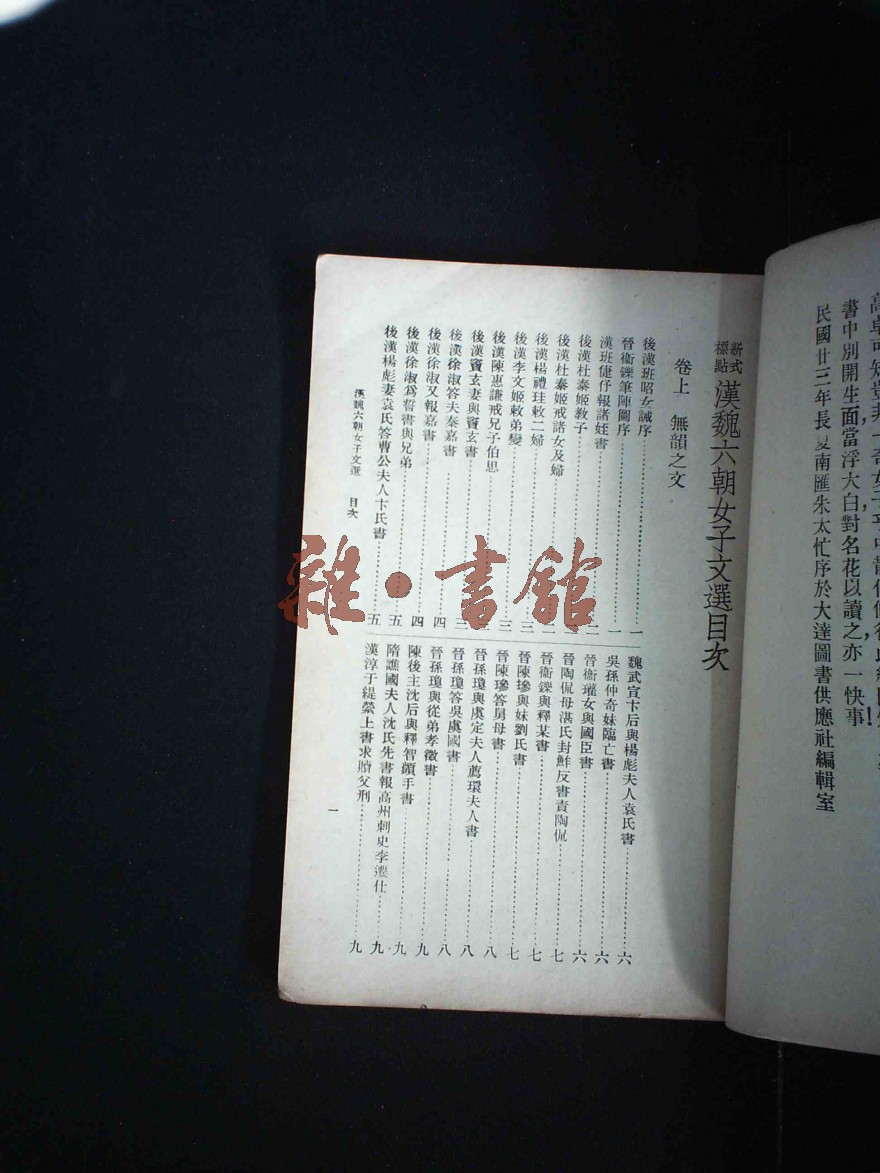 書中別開生面當浮大白對名花以讀之亦一快事
民國廿三年長夏南匯朱太忙序於大達圖書供應社編輯室
新式標點 漢魏六朝女子文選目次
卷上 無韻之文
後漢班昭女誡序……一
晉衞鑠筆陣圖序……一
漢班倢伃報諸姪書……
後漢杜泰姬教子……
後漢杜泰姬戒諸女及婦……
後漢楊禮珪敕二婦……
後漢李文姬敕弟燮……三
後漢陳惠謙戒兄子伯思……三
後漢竇玄妻與竇玄書……
後漢徐淑答夫秦嘉書……
後漢徐淑又報嘉書……四
後漢徐淑爲誓書與兄弟……五
後漢楊彪妻袁氏答曹公夫人卞氏書……五
魏武宣卞后與楊彪夫人袁氏書……六
吳孫仲奇妹臨亡書……六
晉衞瓘女與國臣書……六
晉陶侃母湛氏封鮓反書責陶侃……七
晉衞鑠與釋某書……七
晉陳㻸與妹劉氏書……七
晉陳㻸答舅母書……八
晉孫瓊與虞定夫人薦環夫人書……八
晉孫瓊答吳虞國書……八
晉孫瓊與從弟孝徵書……九
陳後主沈后與釋智顗手書……九
隋譙國夫人沈氏先書報高州刺史李遷仕……九
漢淳于緹縈上書求贖父刑……九
漢魏六朝女子文選 目次
一
雜·書館